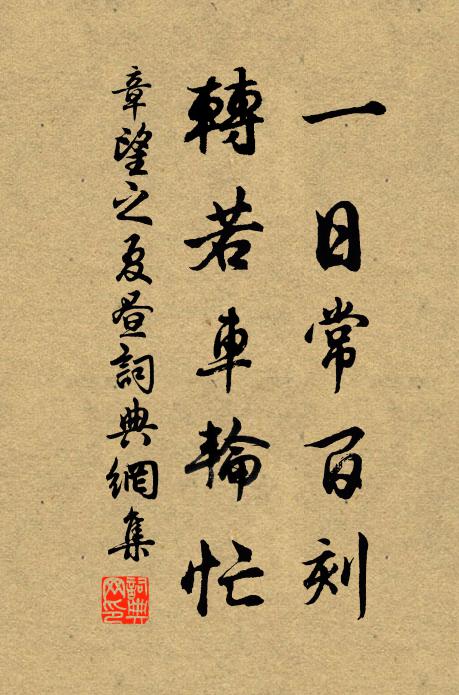 一日常百刻
轉若車輪忙
章望之夏晝詞典網集
詞典網印